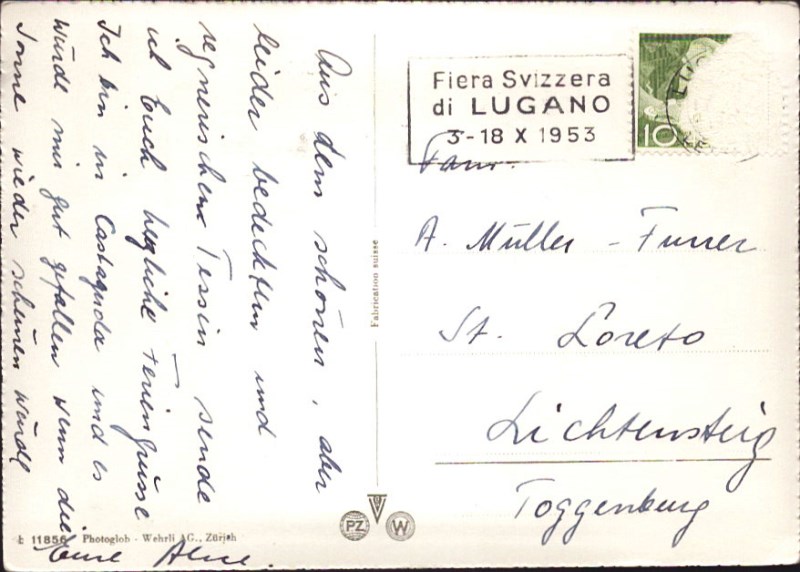 Aus dem schönen, aber
leider bedeckten und
regnerischen Tessin sende
ich Euch herzliche Feriengrüsse
Ich bin in Castagnola und es
würde mir gut gefallen wenn die
Sonne wieder scheinen würde
Eure
Fiera Svizzera
di LUGANO
3-18 X 1953
10
Fam.
A. Müller - Furrer
St. Loreto
Lichtensteig
Toggenburg
Fabrication suisse
PZ W
11856 Photoglob - Wehrli AG., Zürich